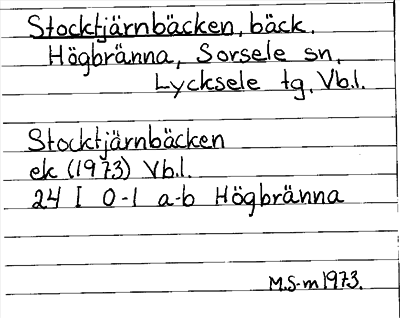 Stocktjärnbäcken, bäck.
Högbränna, Sorsele sn,
Lycksele tg, Vb.l.
Stocktjärnbäcken
ek (1973) Vb.l.
24 I 0-1 a-b Högbränna
M.S-m 1973.